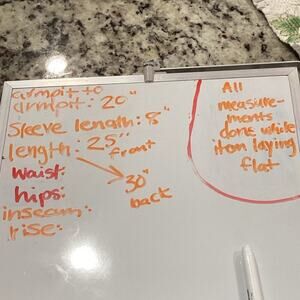 armpit to
armpit: 20"
Sleeve length: 8"
length: 25"
front
30"
back
Waist:
hips:
inseam:
rise:
All
measure-
ments
done while
item laying
flat